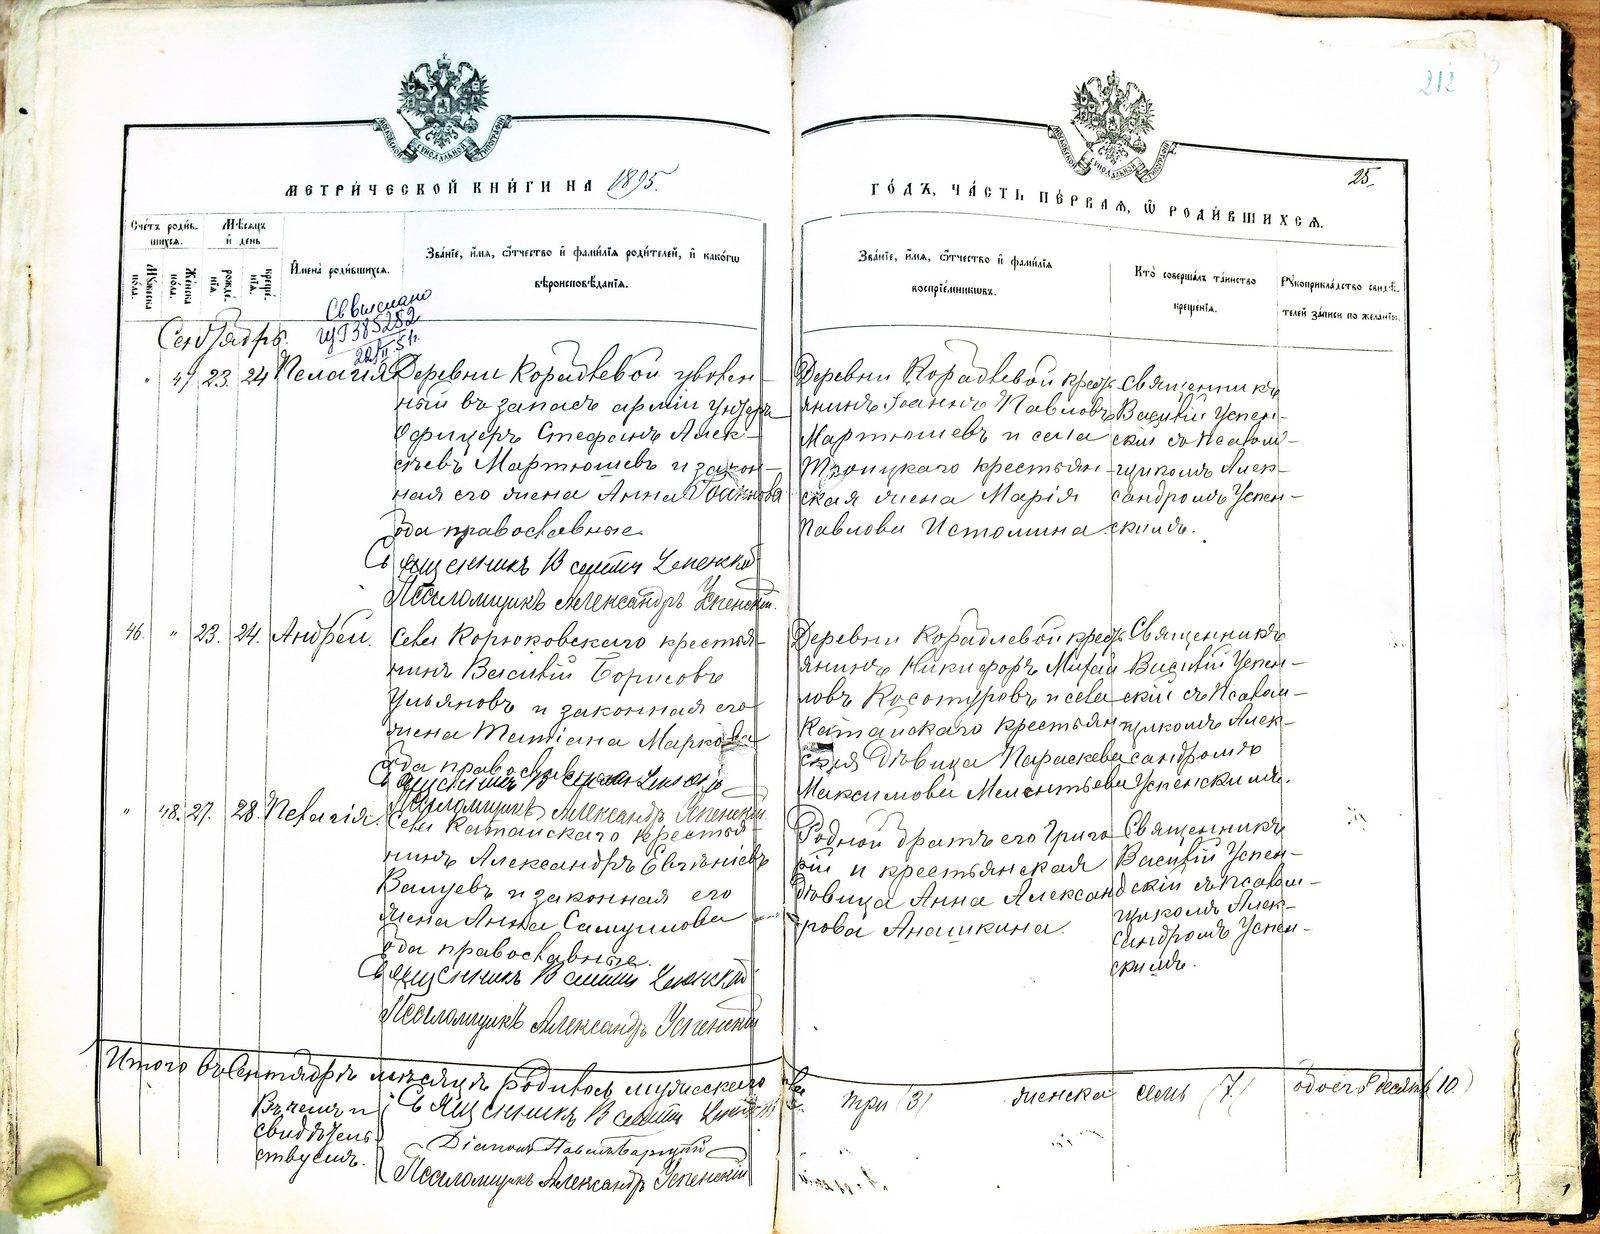 212
МОСКОВСКОЙ СѴНОДАЛЬНОЙ ТИПОГРАФІИ
МОСКОВСКОЙ СѴНОДАЛЬНОЙ ТИПОГРАФІИ
МЕТРИ́ЧЕСКОЙ КНИ́ГИ НА 1895.
ГО́ДЪ, ЧА́СТЬ ПЕ́РВАѦ, Ѿ РОДИ́ВШИХСѦ.
25.
Сче́тъ роди́в-
шихсѧ.
Мѣ́сѧцъ
и҆ день
Мꙋ́жеска
пола.
Же́нска
пола.
рожде́-
нїѧ.
креще́-
нїѧ.
И҆мена̀ роди́вшихсѧ.
Зва́нїе, и҆́мѧ, ѻ҆́тчество и҆ фами́лїѧ роди́телей, и҆ како́гѡ
вѣроисповѣ́данїѧ.
Зва́нїе, и҆́мѧ, ѻ҆́тчество и҆ фами́лїѧ
воспрїе́мниковъ.
Кто̀ соверша́лъ та́инство
креще́нїѧ.
Рꙋкоприкла́дство свидѣ́-
телей за́писи по жела́нїю.
Сентябрь.
Св выслано
385252
" 47 23. 24 Пелагія
Деревни Корабтевой уволен-
ный въ запасъ арміи унтеръ
офицеръ Стефанъ Алек-
сѣевъ Мартюшевъ и закон-
ная его жена Анна Іоаннова
оба православные.
Священникъ Василій Успенскій
Псаломщикъ Александръ Успенскій.
Деревни Корабтевой крест-
янинъ Іоаннъ Павловъ
Мартюшевъ и села
Троицкаго крестьян-
ская жена Марія
Павлова Истомина.
Священникъ
Василій Успен-
скій съ псалом-
щикомъ Алек-
сандромъ Успен-
скимъ.
46. " 23. 24. Андрей.
Села Корюковскаго крестья-
нинъ Василій Борисовъ
Ульяновъ и законная его
жена Татіана Маркова
оба православные
Священникъ Василій Успенскій
Псаломщикъ Александръ Успенскій
Деревни Кораблевой крест-
янинъ Никифоръ Михай
ловъ Косотуровъ и села
Катайскаго крестьян
ская дѣвица Параскева
Максимова Мелентьева
Священникъ
Василій Успен-
скій съ псалом-
щикомъ Алек-
сандромъ
Успенскимъ.
" 48. 27. 28. Пелагія.
Села Катайскаго крестья-
нинъ Александръ Евгеніевъ
Валуевъ и законная его
жена Анна Самуилова
оба православные.
Священникъ Василій Успенскій
Псаломщикъ Александръ Успенскій
Родной братъ его Григо
рій и крестьянская
дѣвица Анна Алексан
дрова Анашкина.
Священникъ
Василій Успен-
скій съ псалом-
щикомъ Алек-
сандромъ Успен-
скимъ.
Итого въ Сентябрѣ мѣсяцѣ родилось мужескаго
три (3) женска семь (7) обоего десять (10)
Въ чемъ и
свидѣтель-
ствуемъ.
Священникъ Василій Успенскій
Діаконъ Павелъ
Псаломщикъ Александръ Успенскій